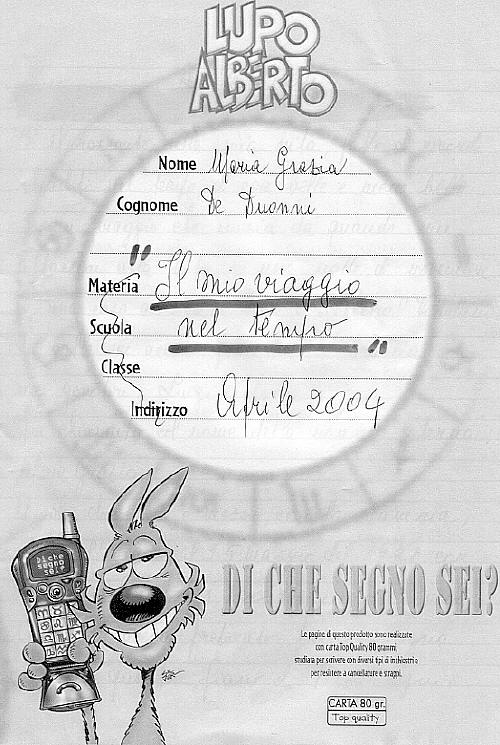 LUPO
ALBERTO
Nome Maria Grazia
Cognome De Duonni
"
Materia Il mio viaggio
Scuola nel tempo "
Classe
Indirizzo Aprile 2004
Di che
segno
sei?
DI CHE SEGNO SEI?
Le pagine di questo prodotto sono realizzate
con carta Top Quality 80 grammi,
studiata per scrivere con diversi tipi di inchiostri e
per resistere a cancellature e strappi.
CARTA 80 gr.
Top quality